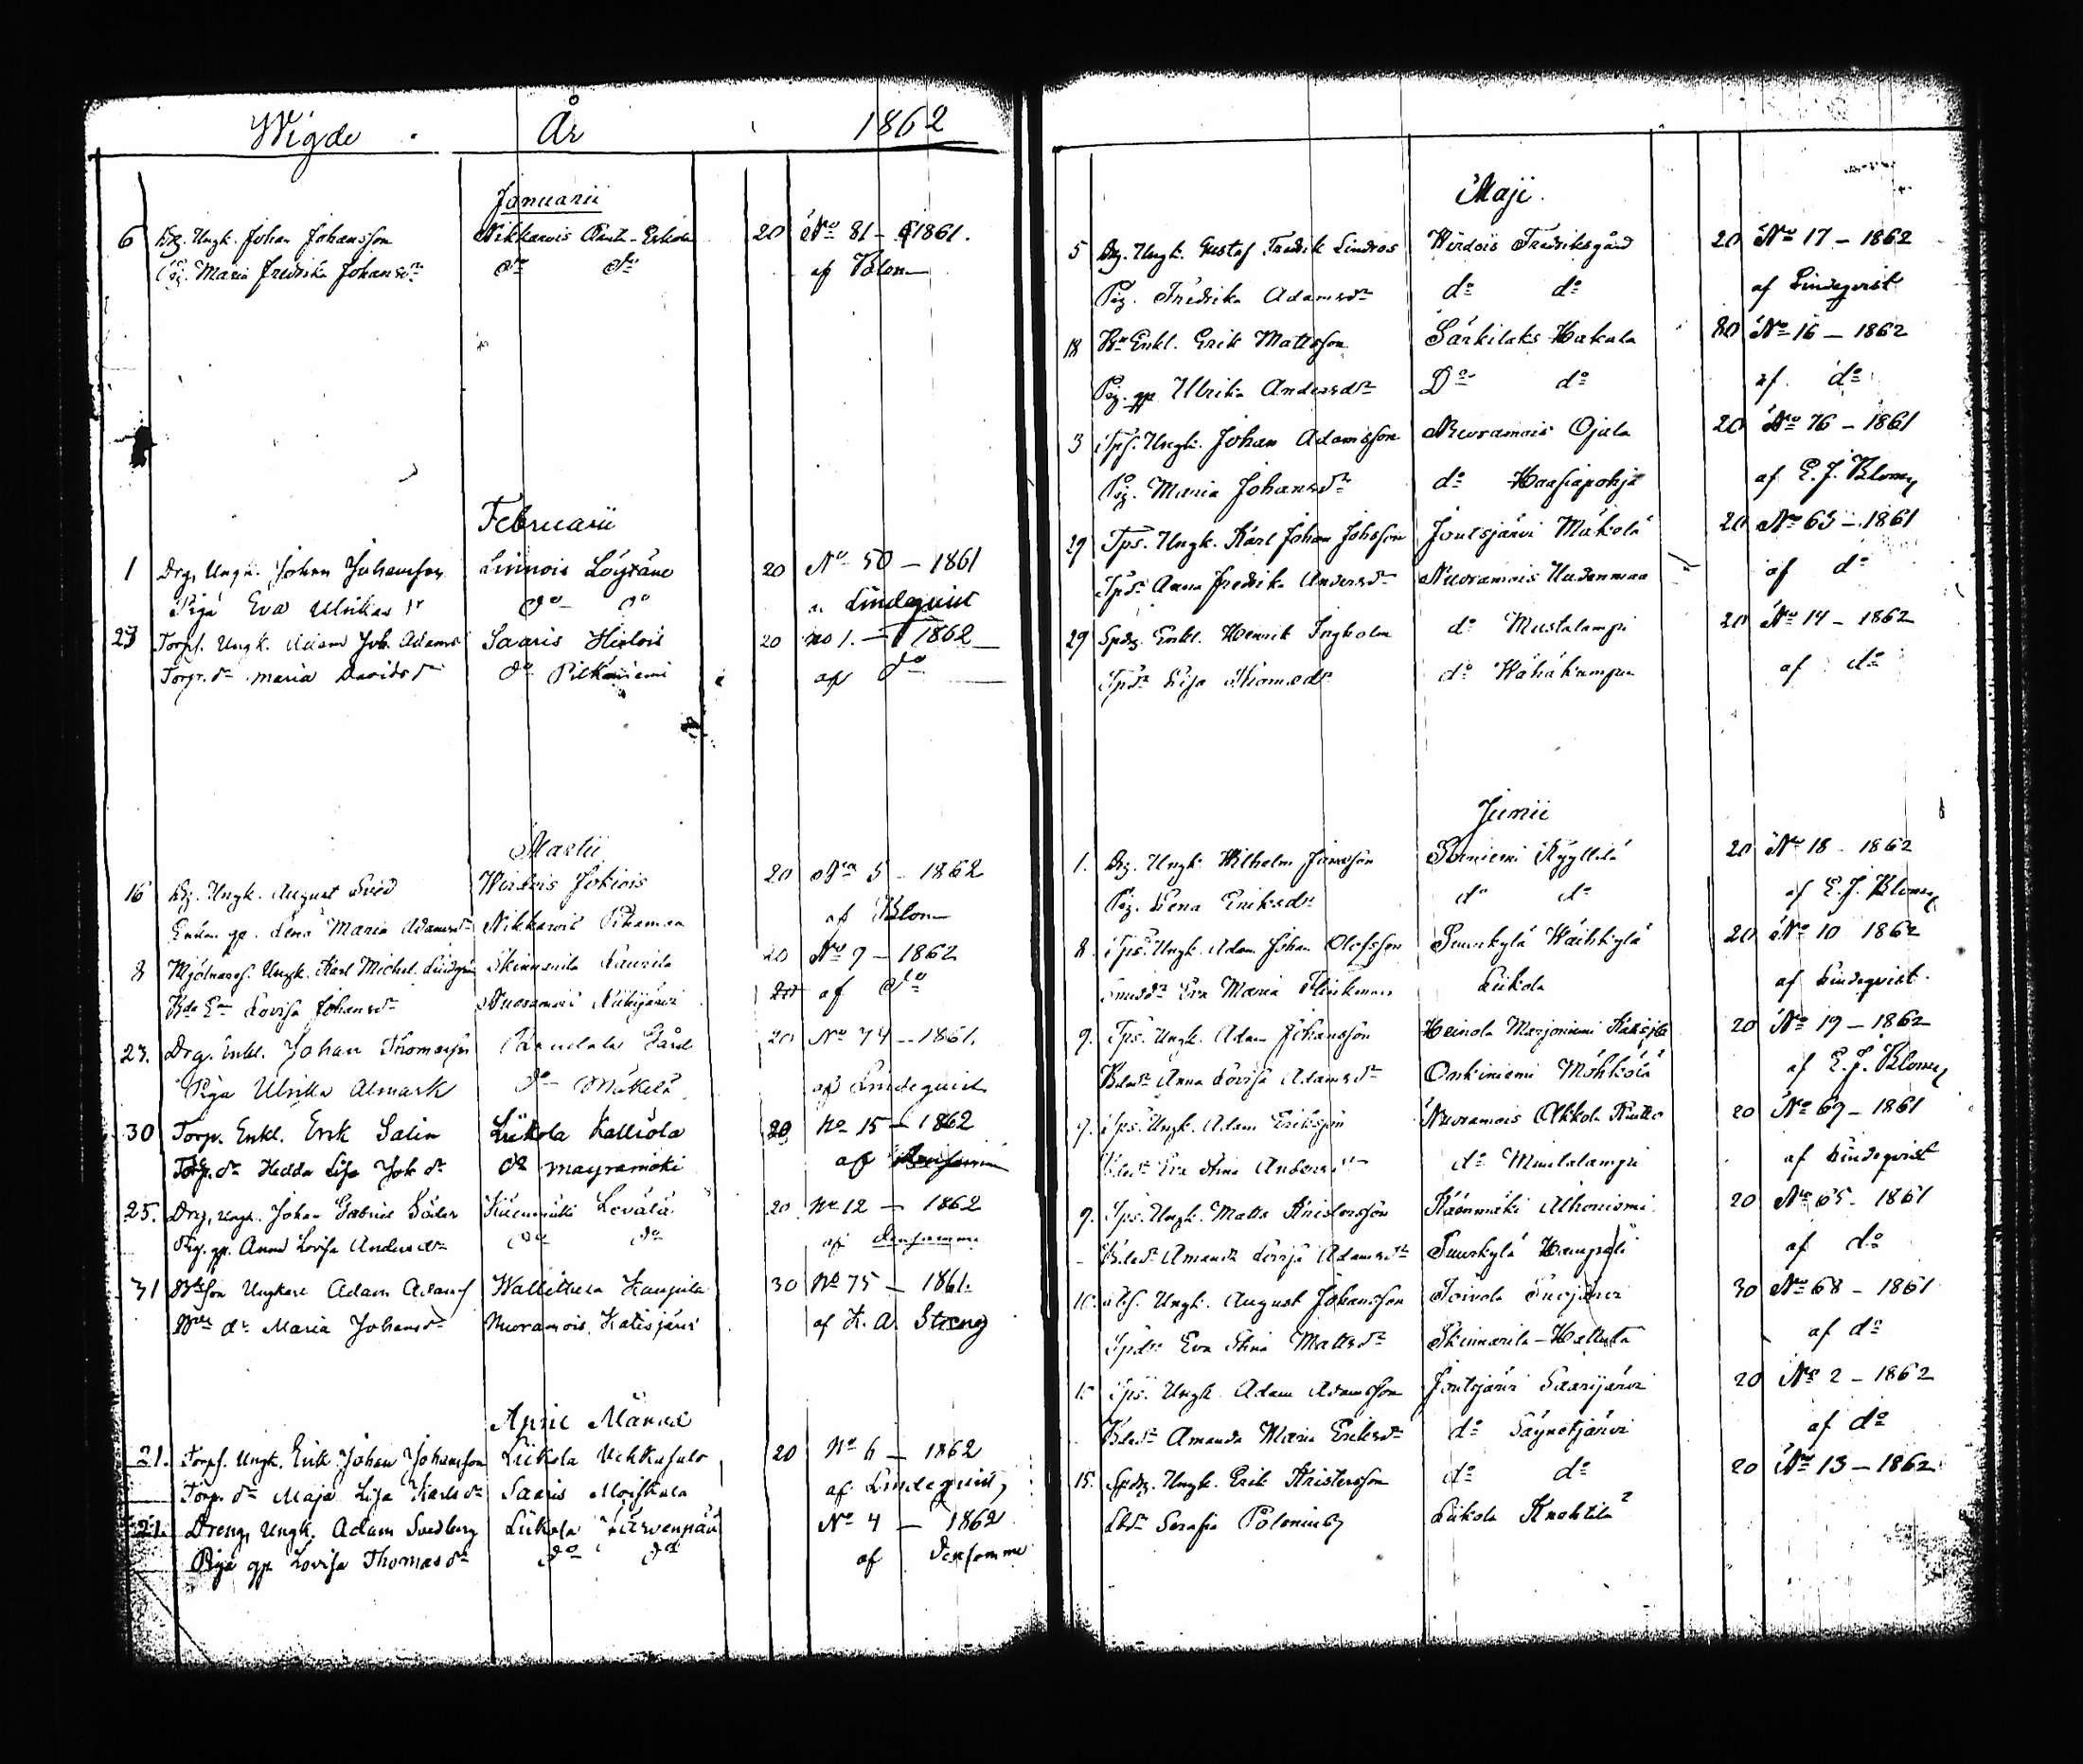 Wigde År 1862
Januarii
6 Drg. Ungk. Johan Johansson Nikkarois Erkola 20 No 81 - 1861.
Pig. Maria Fredrika Johansdr do do af Blom
Februarii
1 Drg. Ungk. Johan Johansson Linnois Löyräne 20 No 50 - 1861
Piga Eva Ulrikas do do Lindequist
23 Torps. Ungk. Adam Joh. Adams Saaris Hirlois 20 no 1. - 1862
Torpr. dr Maria Davidsdr do Pitkäniemi af do
Martii
16 Drg. Ungk. August Sved Wirdois Jokiois 20 No 5 - 1862
Enkan gp. Lena Maria Adamsdr Nikkarois af Blom
8 Mjölnares. Ungk. Karl Michel Skinnarila Laurila 20 No 9 - 1862
Lovisa Johansdr Nuoramois 20 af do
23. Drg. Enkl. Johan Thomasson Gård 20 No 74 - 1861.
Piga Ulrika Almark do Mäkelä af Lindequist
30 Torp. Enkl. Erik Salin Liikola Kalliola 20 No 15 - 1862
Torp. dr Hedda Lisa Joh dr do mäyrämäki af
25. Drg. Ungk. Johan Gabriel Söder Levälä 20 No 12 - 1862
Pig. gp. Anna Lovisa Andersdr do do af densamme
31 Bdeson Ungkarl Adam Adams Wallittula Kaupila 30 No 75 - 1861.
Bde dr Maria Johansdr Nuoramois Katisjärvi af K. A. Streng
April Månad
21. Torps. Ungk. Erik Johan Johansson Liikola Uchkasalo 20 No 6 - 1862
Torp. dr Maja Lisa Karlsdr Saaris Moiskala af Lindequist,
21. Dreng Ungk. Adam Svedberg Liikola Järvenpää No 4 - 1862
Piga gp Lovisa Thomasdr do do af Densamme
Maji.
5 Drg. Ungk. Gustaf Fredrik Lindros Wirdois Fredriksgård 20 No 17 - 1862
Pig. Fredrika Adamsdr do do af Lindeqvist
18 Bn Enkl. Erik Mattsson Särkilaks Hakala 80 No 16 - 1862
Pig. gp Ulrika Andersdr Do do af do
3 Tps. Ungk. Johan Adamsson Nuoramois Ojala 20 No 76 - 1861
Pig. Maria Johansdr do Haasiapohja af E. J. Blom
29 Tps. Ungk. Karl Johan Johsson Jontsjärvi Mäkelä 20 No 63 - 1861
Tpdr Anna Fredrika Andersdr Nuoramois Uudenmaa af do
29 Spdg. Enkl. Henrik Ingholm do Mustalampi 20 No 14 - 1862
Tpdr Lisa Thomasdr do Wähäkampu af do
Junii
1. Drg. Ungk. Wilhelm Jönsson Kyyllilä 20 No 18 - 1862
Pig. Lena Eriksdr do do af E. J. Blom
8 Tps. Ungk. Adam Johan Olofsson Suurkylä Wäihkylä 20 No 10 1862
Eva Maria Flinkman Liikola af Lindeqvist.
9. Tps. Ungk. Adam Johansson Heinola Marjoniemi 20 No 19 - 1862
Bdedr Anna Lovisa Adamsdr Onkiniemi Möhkölä af E. J. Blom
9. Tps. Ungk. Adam Eriksson Nuoramois Okkola 20 No 69 - 1861
Bdedr Eva Stina Andersdr do Mustalampi af Lindeqvist
9. Tps. Ungk. Matts Kristersson Käenmäki Alhoniemi 20 No 65 - 1861
Bdedr Amanda Lovisa Adamsdr Suurkylä af do
10. Ungk. August Johansson Toivola 30 No 68 - 1861
Tpdr Eva Stina Mattsdr Skinnarila - Hallusta af do
15 Tps. Ungk. Adam Adamsson Jontsjärvi Saarijärvi 20 No 2 - 1862
Bdedr Amanda Maria Eriksdr do Säynetjärvi af do
15. Spdg. Ungk. Erik Kristersson do do 20 No 13 - 1862
Serafia Liikola Knohtila